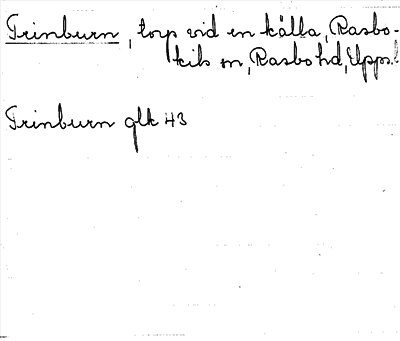 Trinburn, torp vid en källa, Rasbo-
kils sn, Rasbo hd, Upps. l
Trinburn glk 43